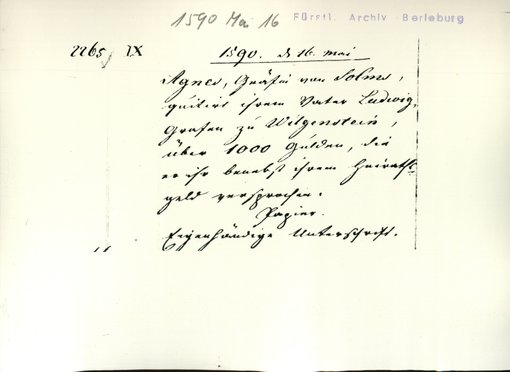 1590 Mai 16 Fürstl. Archiv Berleburg
2265 IX 1590. d 16. mai
Agnes, Gräfin von Solms,
quitirt ihrem Vater Ludwig,
Grafen zu Witgenstein,
über 1000 Gulden, die
er ihr benebst ihrem Heiraths-
geld versprochen.
Papier.
Eigenhändige Unterschrift.